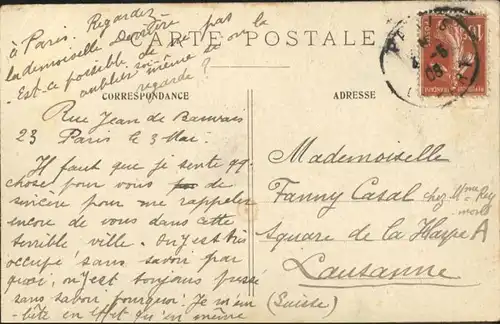 à Paris. Regardez
la demoiselle derrière
Est-ce possible de ne pas
oublier soi-même où on la
regarde?
CARTE POSTALE
CORRESPONDANCE
ADRESSE
Rue Jean de Beauvais
23 Paris le 3 Mai.
Il faut que je sente qq.
chose pour vous de
sincère pour me rappeler
encore de vous dans cette
terrible ville. On y est très
occupé sans savoir par
quoi, on y est toujours pressé
sans savoir pourquoi! Je m'em-
bête en effet qu'en même
Mademoiselle
Fanny Casal chez Mme Rey
mond
Square de la Harpe A
Lausanne
(Suisse)